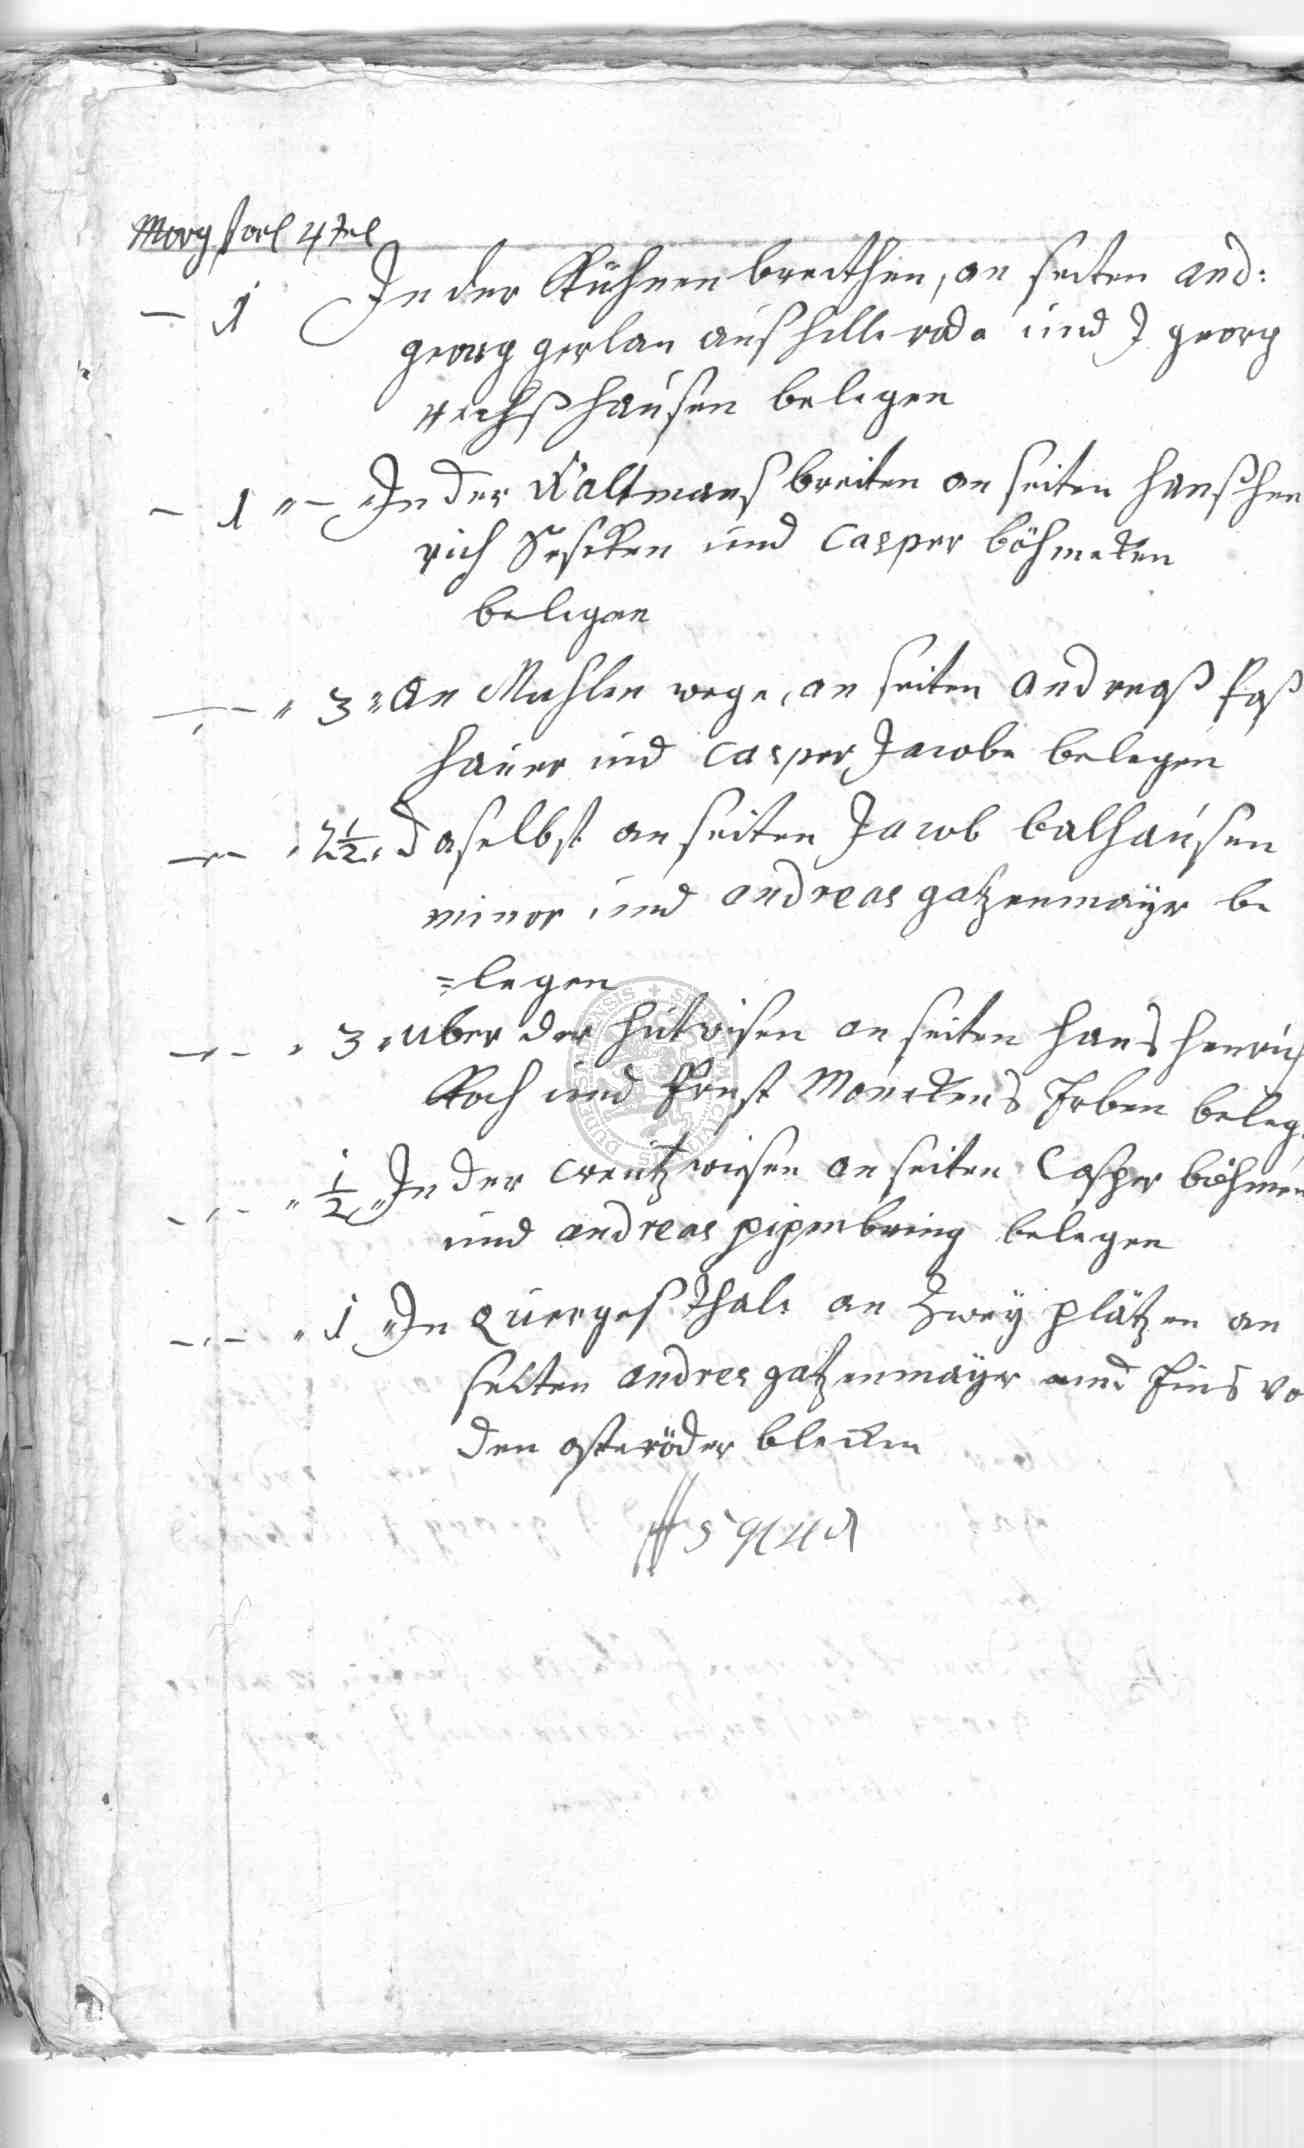 Morg vorl 4tel
– 1 In der Kuhnen breithen, an seiten and:
georg gerlan auß hillerode und J georg
hausen belegen
– 1 " – In der Waltmans breiten an seiten Hanß Hen
rich und Casper böhmeken
belegen
— " 3 " An Muhlen wege, an seiten Andreaß Faß
hauer und Casper Jacobe belegen
— " 2½ " daselbst an seiten Jacob balhausen
minor und andreas gatzenmaÿer be
=legen
— " 3 " uber der hutwisen an seiten Hans Henrich
Koch und Ernst Mönckens Erben beleg
— " ½ " In der Creutzwiesen an seiten Casper böhmen
und andreas pipenbring belegen
— " 1 " In Querges Thale an Zweÿ plätzen an
seiten andres gatzenmaÿer und vo
den osteröder blecken